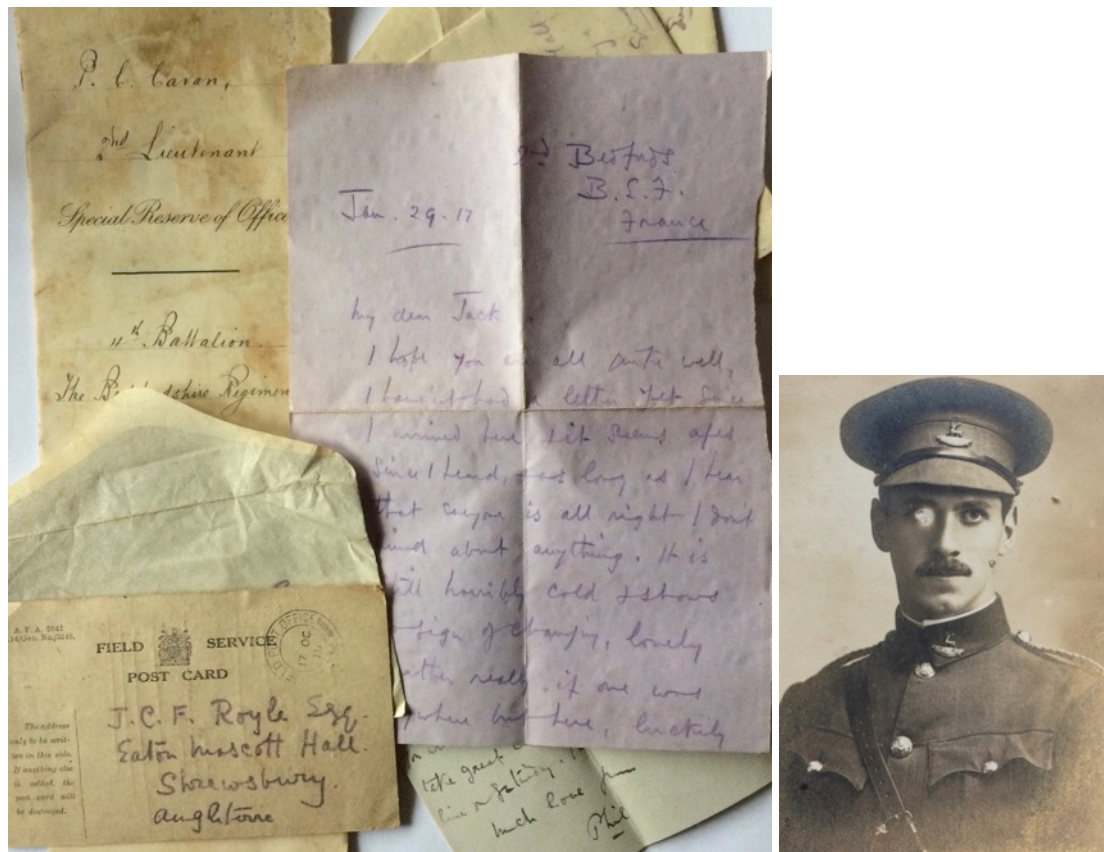 P. C. Cavan,
2nd Lieutenant
Special Reserve of Office
4th Battalion
The Be dshire Regimen
2nd Bedfords
B.E.F.
France
Jan. 29. 17
My dear Jack
I hope you are all quite well,
I haven't had a letter yet since
I arrived here & it seems ages
since I heard, as long as I hear
that everyone is all right I don't
mind about anything. It is
still horribly cold & shows
sign of changing, lovely
weather really, if one were
anywhere but here, luckily
A. F. A. 2042
FIELD SERVICE
POST CARD
FIELD POST OFFICE
17 OC
The address
only to be writ-
ten on this side.
If anything else
is added the
post-card will
be destroyed.
J. C. F. Royle Esq.
Eaton Mascott Hall.
Shrewsbury.
Angleterre
take great
line on Saturday.
Much love from
Phil